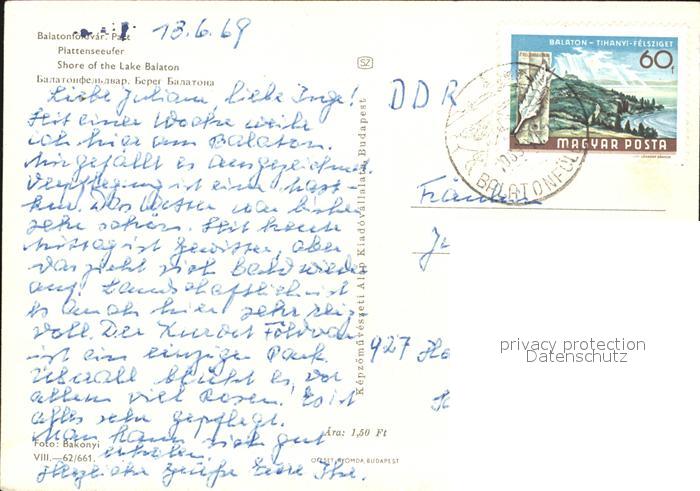 13.6.69
Balatonföldvár. Part
Plattenseeufer
Shore of the Lake Balaton
Балатонфельдвар. Берег Балатона
Liebe Juliana, liebe Inge!
Seit einer Woche weile
ich hier am Balaton.
Mir gefällt es ausgezeichnet.
Verpflegung ist eine
Das Wetter war bisher
sehr schön. Seit heute
Mittag ist Gewitter, aber
das zieht sich bald wieder
auf. Landschaftlich ist
es auch hier sehr reiz-
voll. Der Kurort Földvár
ist ein einziger Park.
Überall blüht es, vor
allem viel Rosen. Es ist
alles sehr gepflegt.
Man kann sich gut
erholen.
Herzliche Grüße Eure
Foto: Bakonyi
VIII.—62/661.
Ára: 1,50 Ft
OFFSET NYOMDA, BUDAPEST
SZ
Képzőművészeti Alap Kiadóvállalata, Budapest
DDR
Ju
927 Ha
BALATON – TIHANYI-FÉLSZIGET
60f
MAGYAR POSTA
BALATONFÖL
privacy protection
Datenschutz